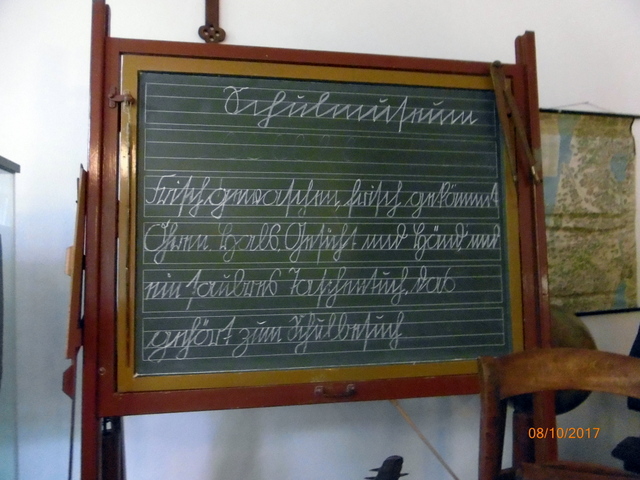 Schulmuseum
Frisch gewaschen, frisch gekämmt
Ohren Hals, Gesicht und Händ und
ein saubres Taschentuch, das
gehört zum Schulbesuch
08/10/2017